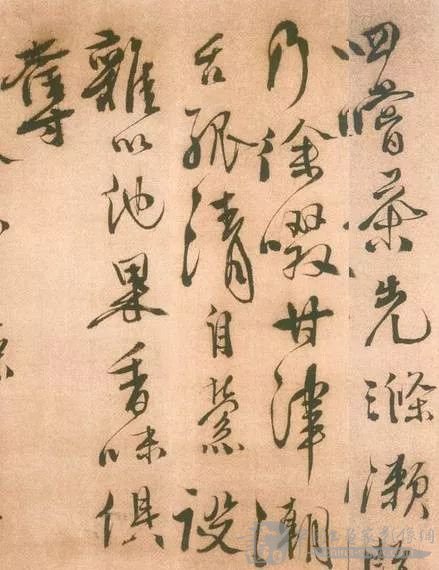 四嚐茶先滌漱
乃徐啜甘津潮
舌孤清自縈設
雜以他果香味俱
奪